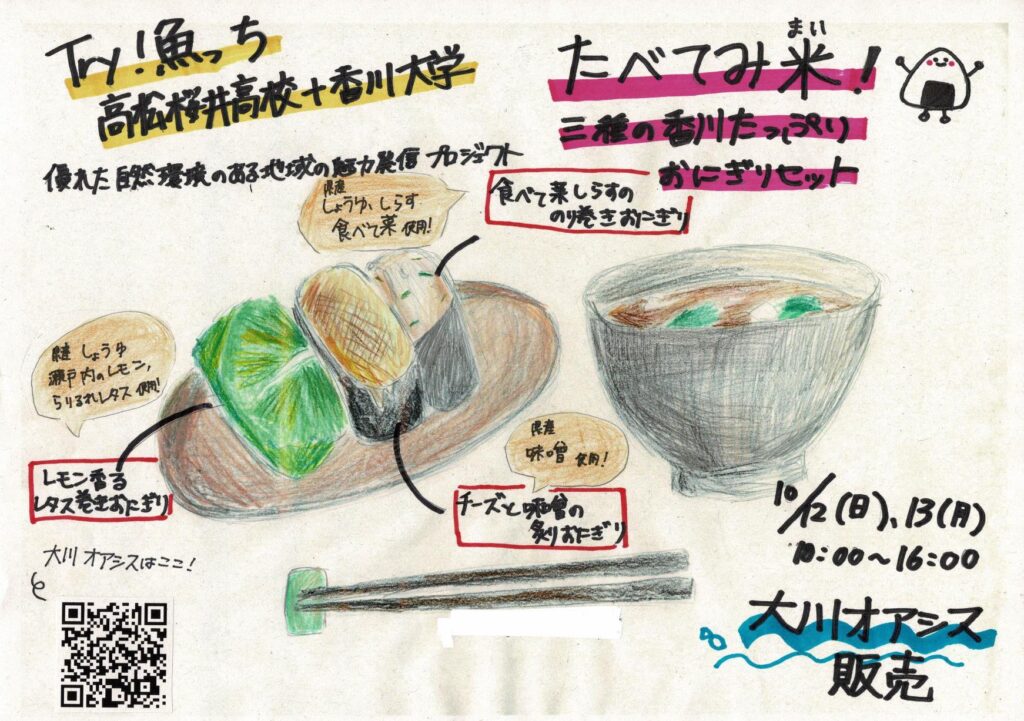 Try!魚っち
高松桜井高校+香川大学
優れた自然環境のある地域の魅力発信プロジェクト
まい
たべてみ米!
三種の香川たっぷり
おにぎりセット
県産
しょうゆ、しらす
食べて菜 使用!
食べて菜しらすの
のり巻きおにぎり
県産 しょうゆ
瀬戸内のレモン,
ちりめんレタス 使用!
レモン香る
レタス巻きおにぎり
県産
味噌 使用!
チーズと味噌の
炙りおにぎり
10/12(日)、13(月)
10:00~16:00
大川オアシスはここ!
大川オアシス
販売